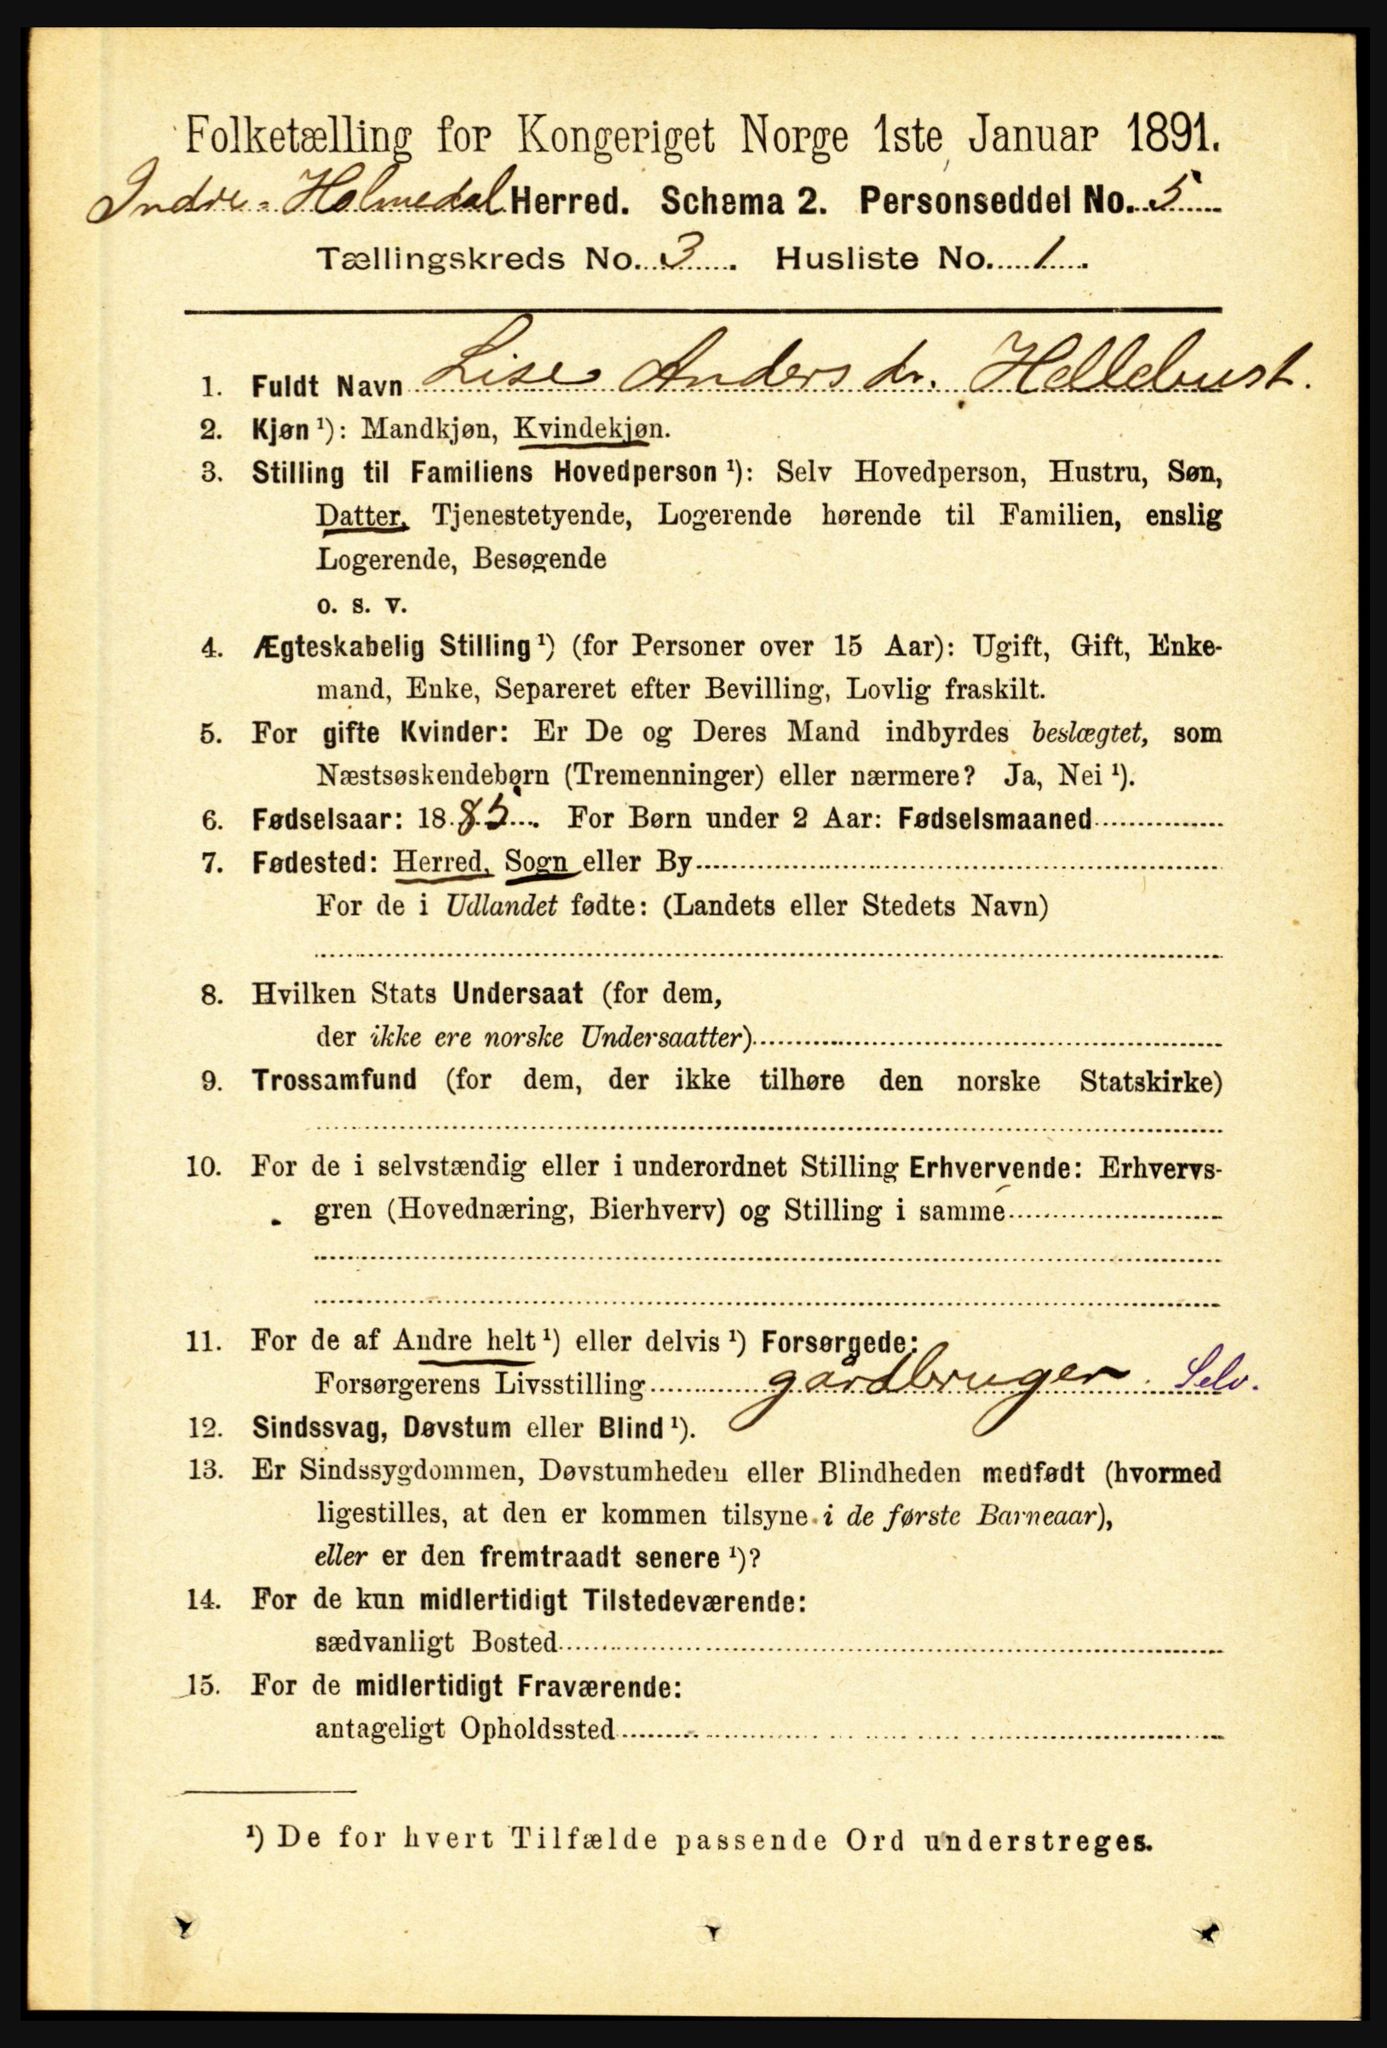 Folketælling for Kongeriget Norge 1ste Januar 1891.
Indre-Holmedal Herred. Schema 2. Personseddel No. 5
Tællingskreds No. 3. Husliste No. 1.
1. Fuldt Navn Lise Andersdr. Hellebust.
2. Kjøn ¹): Mandkjøn, Kvindekjøn.
3. Stilling til Familiens Hovedperson ¹): Selv Hovedperson, Hustru, Søn,
Datter, Tjenestetyende, Logerende hørende til Familien, enslig
Logerende, Besøgende
o. s. v.
4. Ægteskabelig Stilling ¹) (for Personer over 15 Aar): Ugift, Gift, Enke-
mand, Enke, Separeret efter Bevilling, Lovlig fraskilt.
5. For gifte Kvinder: Er De og Deres Mand indbyrdes beslægtet, som
Næstsøskendebørn (Tremenninger) eller nærmere? Ja, Nei ¹).
6. Fødselsaar: 1885. For Børn under 2 Aar: Fødselsmaaned
7. Fødested: Herred, Sogn eller By
For de i Udlandet fødte: (Landets eller Stedets Navn)
8. Hvilken Stats Undersaat (for dem,
der ikke ere norske Undersaatter)
9. Trossamfund (for dem, der ikke tilhøre den norske Statskirke)
10. For de i selvstændig eller i underordnet Stilling Erhvervende: Erhvervs-
gren (Hovednæring, Bierhverv) og Stilling i samme
11. For de af Andre helt ¹) eller delvis ¹) Forsørgede:
Forsørgerens Livsstilling gårdbruger Selv.
12. Sindssvag, Døvstum eller Blind ¹).
13. Er Sindssygdommen, Døvstumheden eller Blindheden medfødt (hvormed
ligestilles, at den er kommen tilsyne i de første Barneaar),
eller er den fremtraadt senere ¹)?
14. For de kun midlertidigt Tilstedeværende:
sædvanligt Bosted
15. For de midlertidigt Fraværende:
antageligt Opholdssted
¹) De for hvert Tilfælde passende Ord understreges.